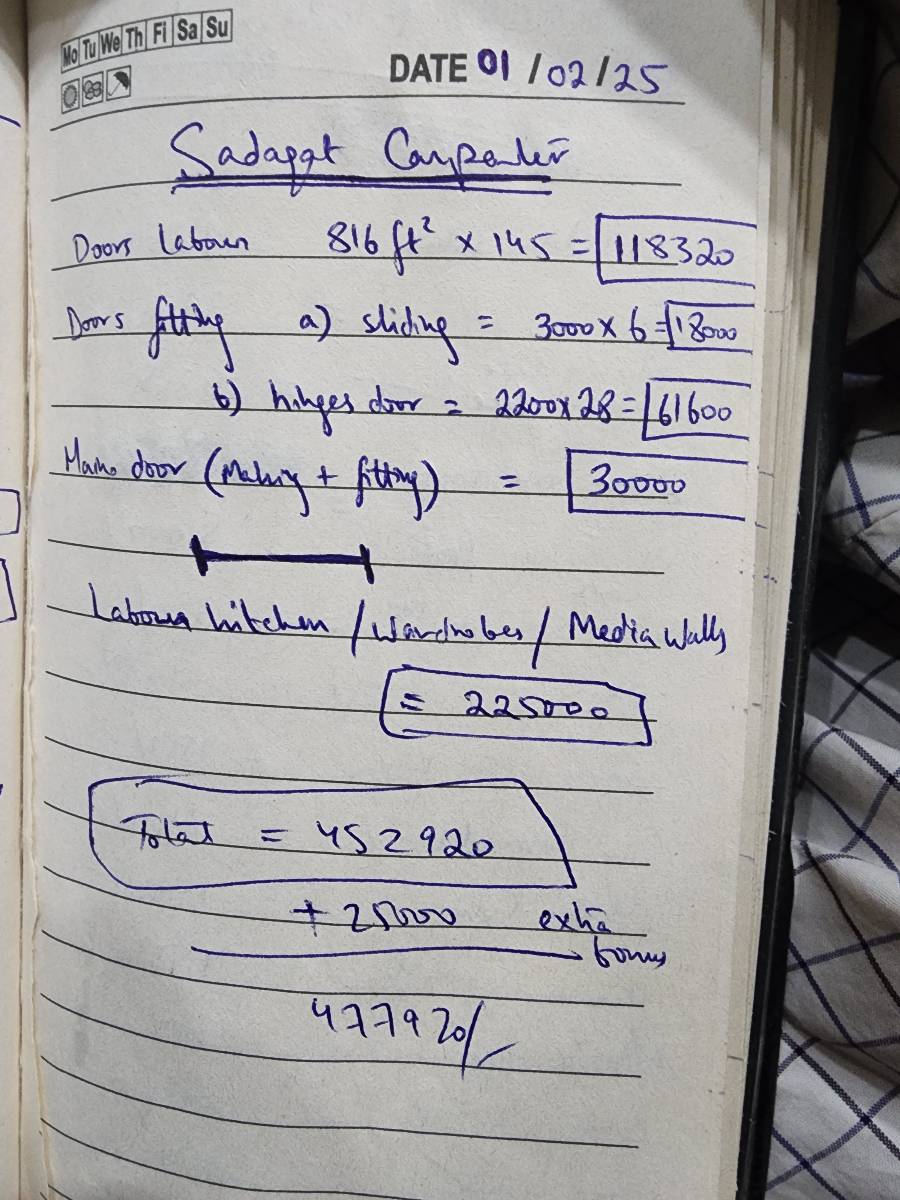 Mo Tu We Th Fi Sa Su
DATE 01/02/25
Sadaqat Carpenter
Doors labour 816 ft² x 145 = 118320
Doors fitting a) sliding = 3000 x 6 = 18000
b) hinges door = 2200 x 28 = 61600
Main door (Making + fitting) = 30000
Labour kitchen / wardrobes / Media walls
= 225000
Total = 452920
+ 25000 extra
bonus
477920/